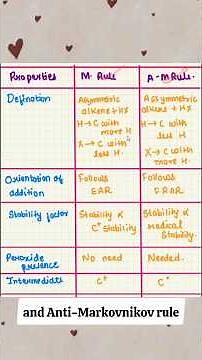 Properties M. Rule A-M.Rule
Definition
Asymmetric
alkene + HX
H→C with
more H
X→C with
less H.
Asymmetric
alkene + HX
H→C with
less H
X→C with
more H.
Orientation of
addition
Follows
EAR
Follows
FRAR
Stability factor
Stability α
C⁺ Stability
Stability α
Radical
Stability.
Peroxide
presence
No need
Needed.
Intermediate
C⁺
C•
and Anti-Markovnikov rule